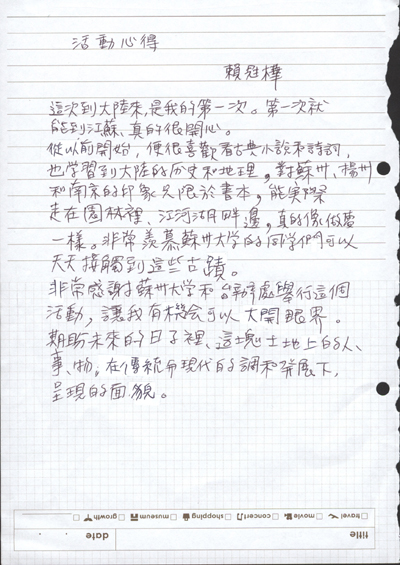 活動心得
賴冠樺
這次到大陸來,是我的第一次。第一次就
能到江蘇、真的很開心。
從以前開始,便很喜歡看古典小說和詩詞,
也學習到大陸的历史和地理,對蘇州、揚州
和南京的印象只限於書本,能實際
走在園林裡、江河湖畔邊,真的像做夢
一樣。非常羨慕蘇州大学的同学們可以
天天接觸到這些古蹟。
非常感謝蘇州大学和台辦處舉行這個
活動,讓我有機会可以大開眼界。
期盼未來的日子裡、這塊土地上的人、
事、物,在傳統和現代的調和發展下,
呈現的面貌。
title
date
travel
movie
concert
shopping
museum
growth